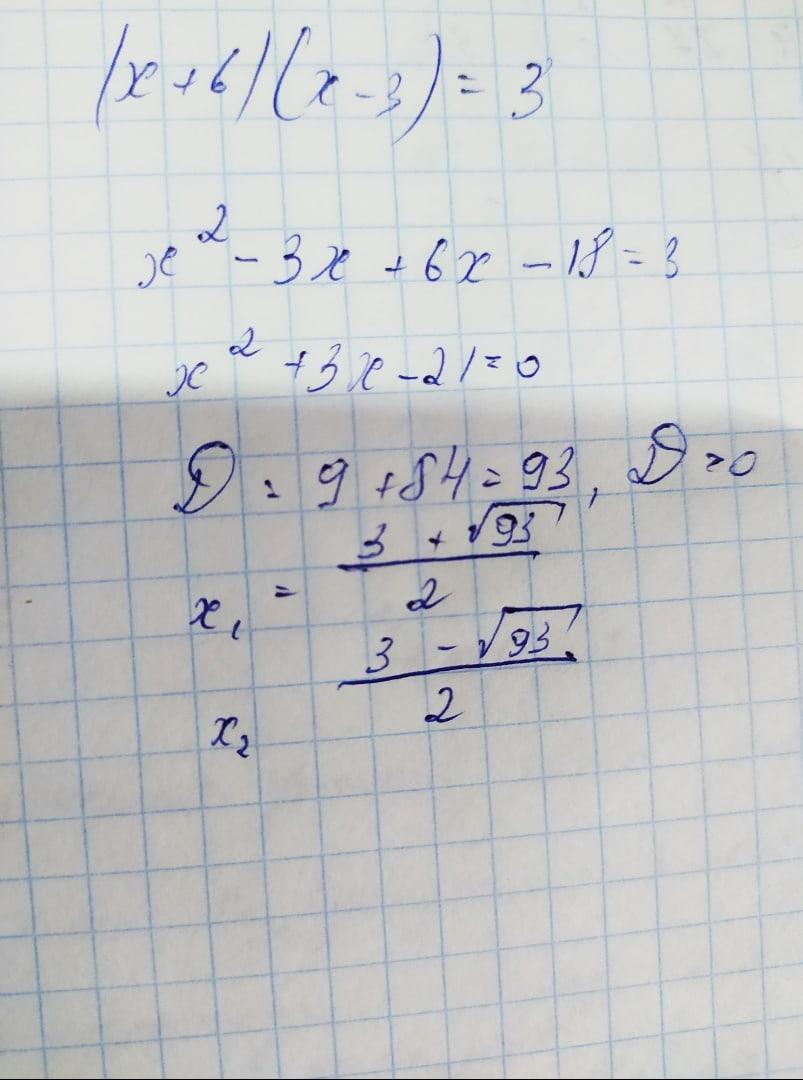 (x+6)(x-3) = 3
x² - 3x + 6x - 18 = 3
x² + 3x - 21 = 0
D = 9 + 84 = 93, D > 0
x₁ = (3 + √93)/2
x₂ (3 - √93)/2